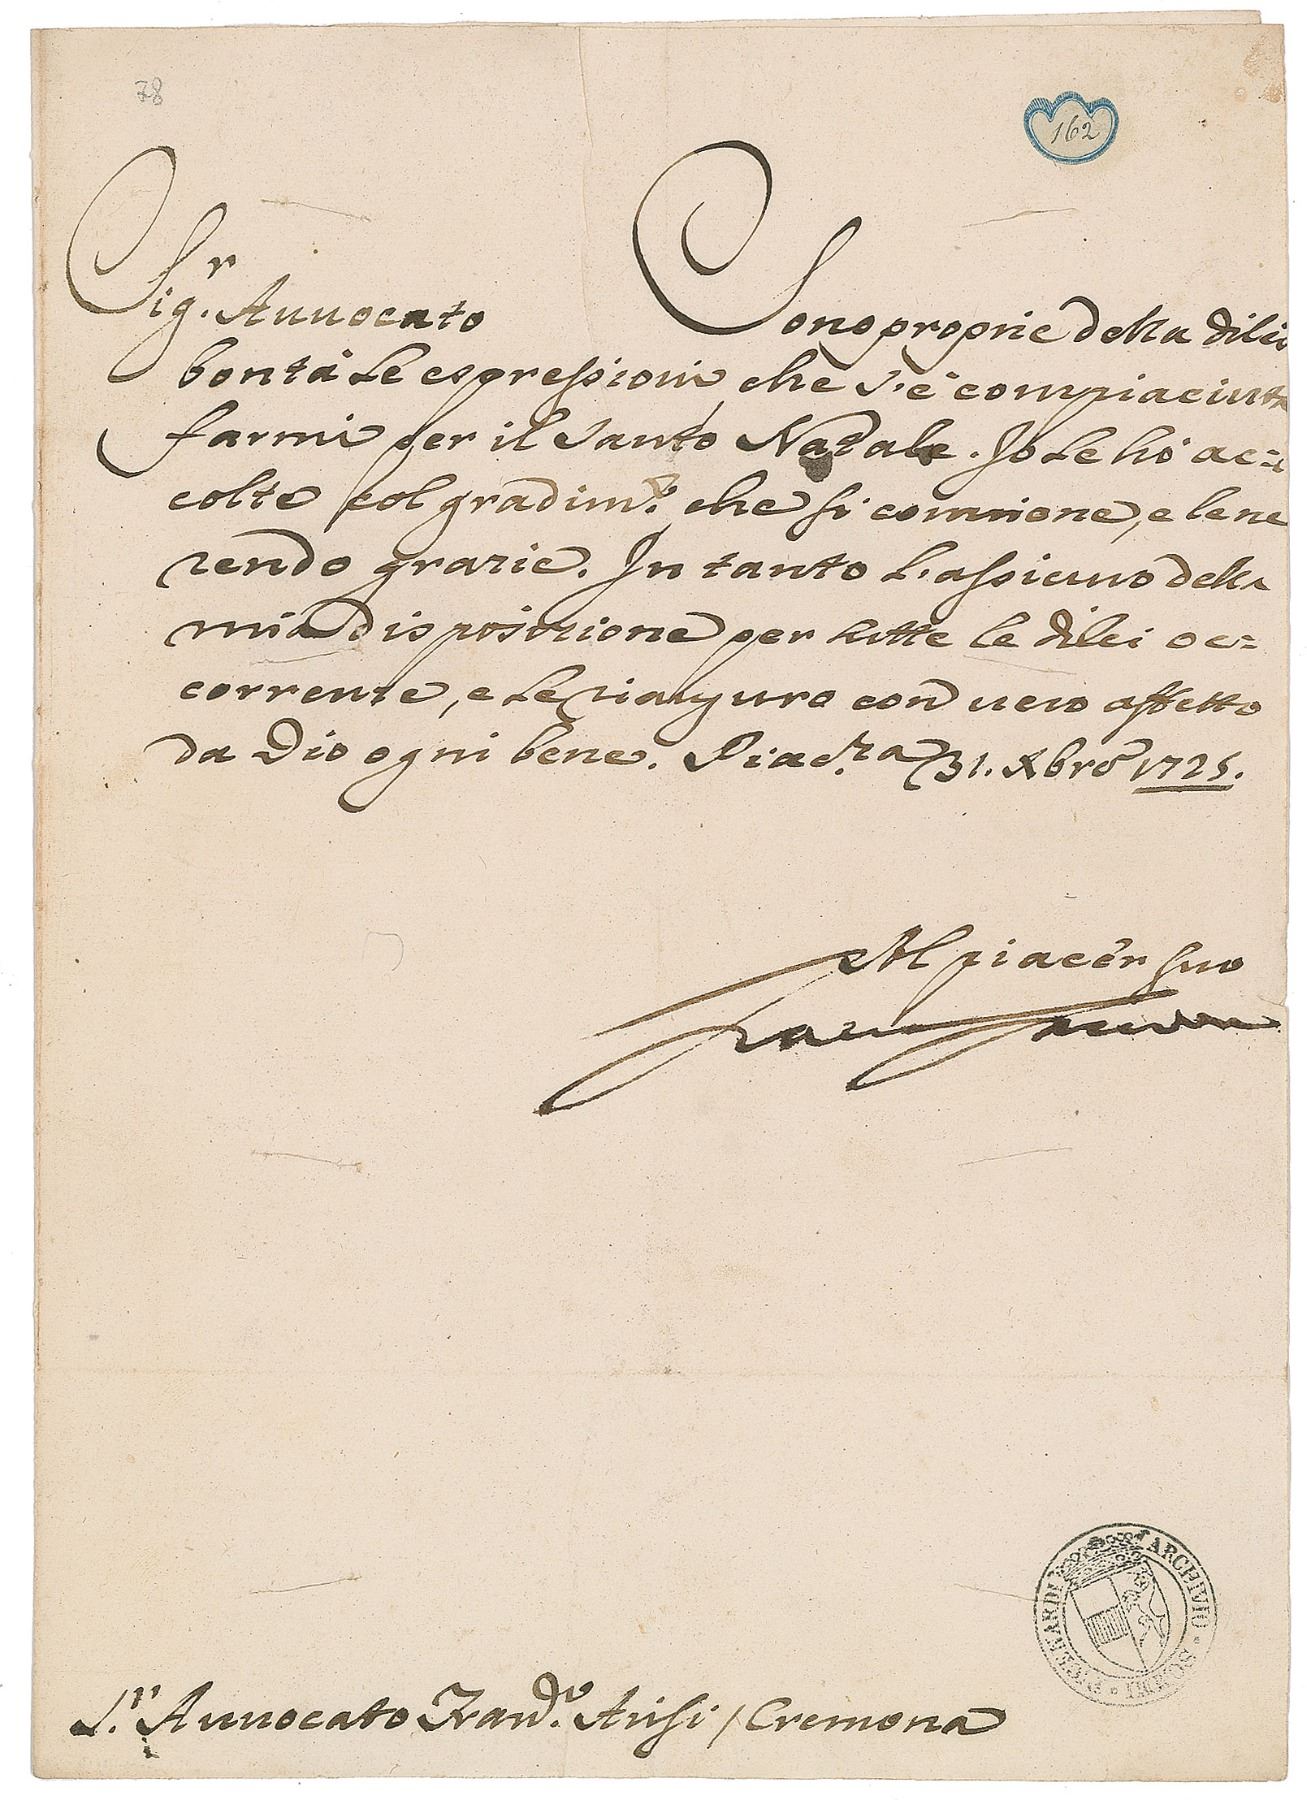 78
162
Sig.r Auuocato Sono proprie della di lei
bontà le espressioni, che s'è compiaciuta
farmi per il Santo Natale. Io le hò ac=
colte col gradim.to che si conuiene, e le ne
rendo grazie. In tanto l'assicuro della
mia disposizione per tutte le di lei oc=
correnze, e le riauguro con uero affetto
da Dio ogni bene. Piac.za 31. Xbre 1725.
Al piacer suo
Fran Farnese
S.r Auuocato Fran.co Arisi / Cremona
ARCHIVIO · SOMMI · PICENARDI